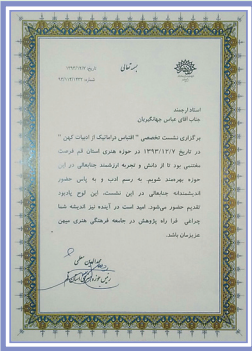 بسمه تعالی
تاریخ: ۱۳۹۳/۱۲/۷
استاد ارجمند
جناب آقای عباس جهانگیریان
برگزاری نشست تخصصی "اقتباس دراماتیک از ادبیات کهن"
در تاریخ ۱۳۹۳/۱۲/۷ در حوزه هنری استان قم فرصت
مغتنمی بود تا از دانش و تجربه ارزشمند جنابعالی در این
حوزه بهره‌مند شویم. به رسم ادب و به پاس حضور
اندیشمندانه جنابعالی در این نشست، این لوح یادبود
تقدیم حضور می‌شود. امید است در آینده نیز اندیشه شما
چراغی فرا راه پژوهش در جامعه فرهنگی هنری میهن
عزیزمان باشد.
رئیس حوزه هنری استان قم